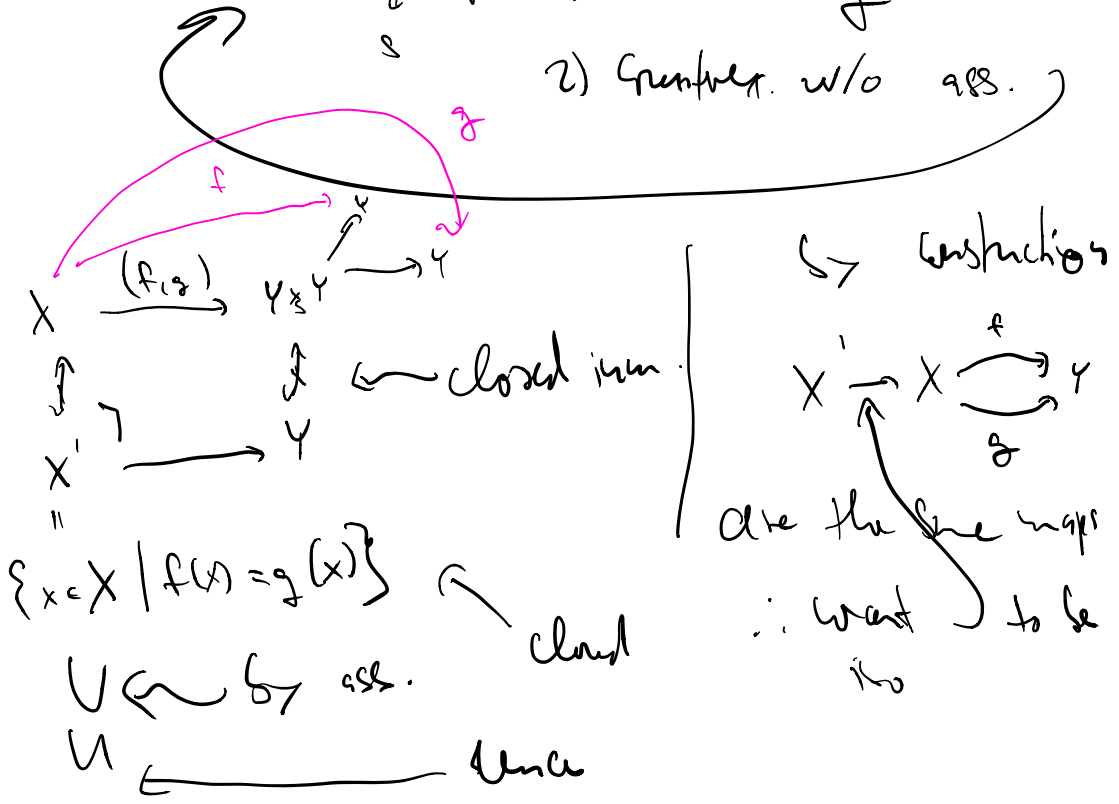 s
2) w/o ass.
g
f
Y
(f,g) Y ×_S Y → Y
X
closed imm.
X'
Y
=
{x ∈ X | f(x) = g(x)}
closed
U by ass.
U dense
by construction
f
X' → X Y
g
are the same maps
∴ want to be
iso